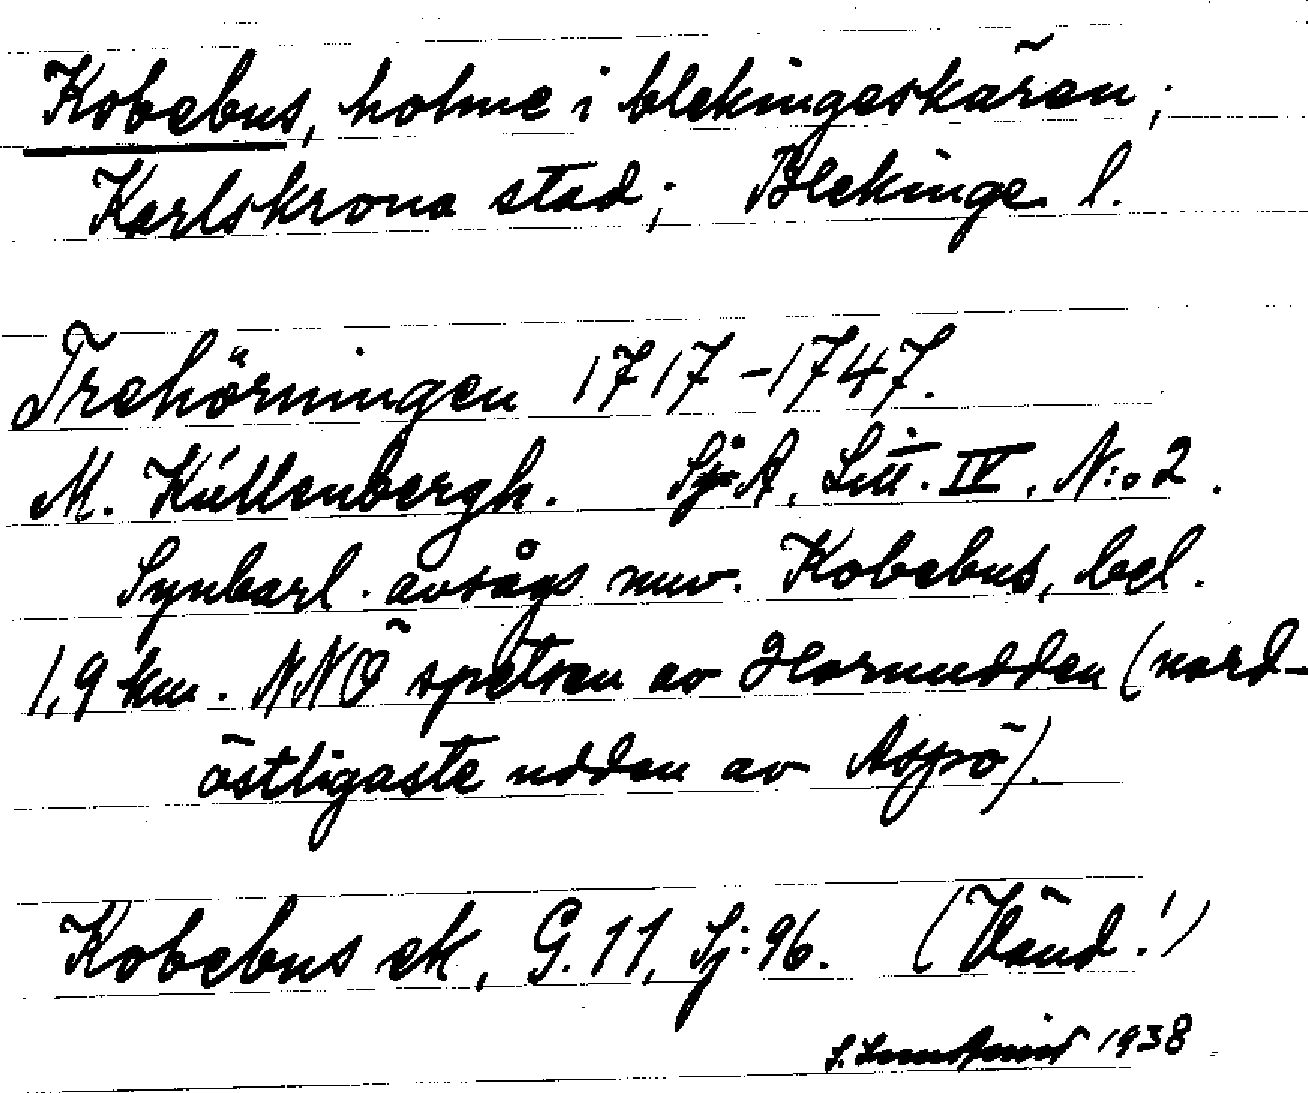 Kobebus, holme i blekingeskären;
Karlskrona stad; Blekinge l.
Trehörningen 1717-1747.
M. Kúllenbergh. Sj:A, Litt. IV, N:o 2.
Synbarl. avságs nuv. Kobebus, bel.
1,9 km. NNÖ spetsen av Hornudden (nord-
östligaste udden av Aspö).
Kobebus ek, G. 11, Sj:96. (Vänd!)
S. 1938